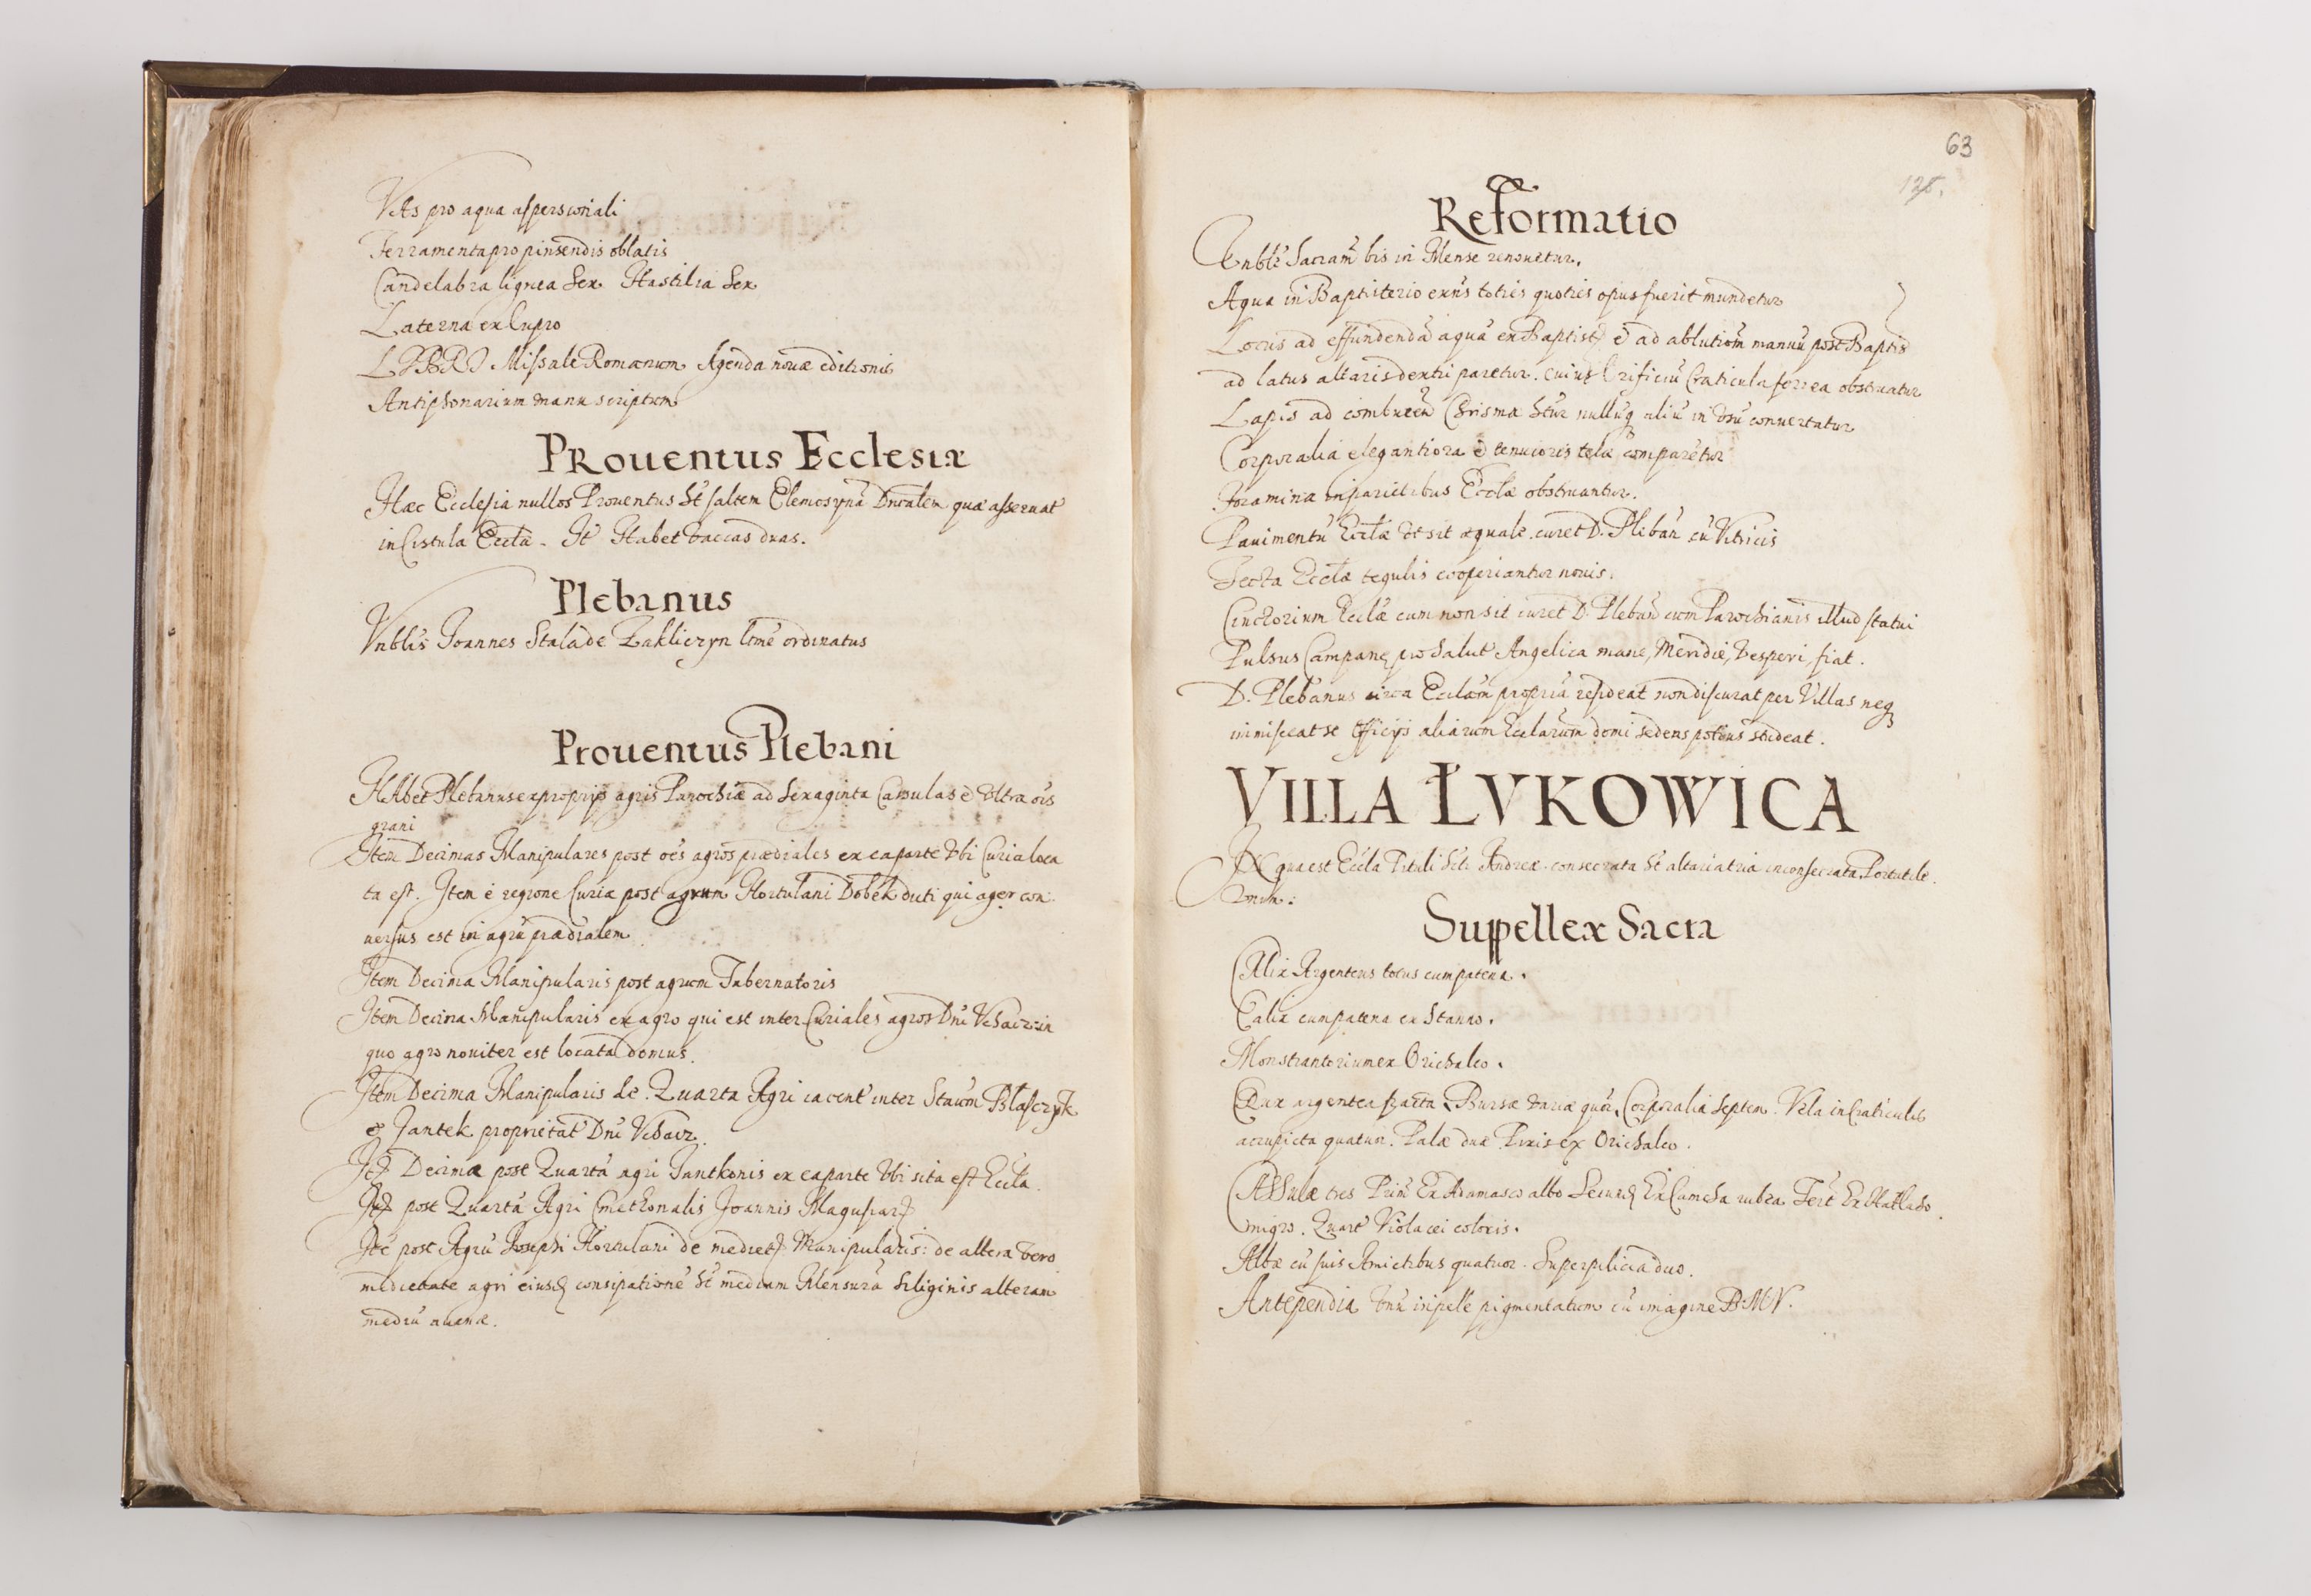 VAs pro aqua aspersoriali
Ferramenta pro pinsendis oblatis
Candelabra lignea Sex Hastilia Sex
Laterna ex Cupro
LIBRI Missale Romanum Agenda nouæ editionis
Antiphonarium manu scriptum
Prouentus Ecclesiæ
Hæc Ecclesia nullos Prouentus ht saltem Elemosynā Dnicalem quæ asseruat
in Cistula Eccla. It Habet vaccas duas.
Plebanus
Vnblis Joannes Stala de Zakliczyn ltme ordinatus
Prouentus Plebani
HAbet Plebanus ex proprijs agris Parochiæ ad Sexaginta Capulas & vltra ois
grani
Item Decimas Manipulares post oēs agros prædiales ex ea parte vbi Curia loca
ta est. Item e regione Curiæ post agrum Hortulani Dobek duti qui ager con
uersus est in agrū prædialem
Item Decima Manipularis post agrum Tabernatoris
Item Decima Manipularis ex agro qui est inter Curiales agros Dni in
quo agro nouiter est locata domus.
Item Decima Manipularis de Quarta Agri iacent inter Blasczyk
& Jantek proprietat Dni
Decima post Quartā agri Jantkonis ex ea parte vbi sita est Eccla.
post Quartā Agri Cmethonalis Joannis
Ite post Agrū Josephi Hortulani de mediet Manipularis: de altera vero
medietate agri eiusd consipatione ht mediam Mensurā Siliginis alteram
mediū auenæ.
63
128.
Reformatio
Vnble Sacram bis in Mense renouetur.
Aqua in Baptisterio exns toties quoties opus fuerit mundetur
Locus ad effundendā aquā ex Baptist & ad ablutiom manuū post Baptis
ad latus altaris dextri paretur. cuius Orificiū Craticula ferrea obstruatur
Lapis ad comburen Chrisma htur nullūq aliū in vsū conuertatur
Corporalia elegantiora & tenuioris telæ comparētur
Foramina in parietibus Ecclæ obstruantur.
Pauimentū Ecclæ vt sit æquale curet D. Plibān cū Vitricis
Tecta Ecclæ tegulis cooperiantur nouis.
Cinctorium Ecclæ cum non sit curet D. Pleban cum Parochianis illud statui
Pulsus Campanę pro Salut Angelica mane, Meridie, Vesperi, fiat.
D. Plebanus circa Ecclam propriā resideat non discurat per Villas neq
inmisceat se Officijs aliarum Eccl̄arum domi sedens potius studeat.
VILLA ŁVKOWICA
IN qua est Eccla Tituli Scti Andreæ consecrata ht altaria tria inconsecrata, Portatile.
vnum.
Suppellex Sacra
CAlix Argenteus totus cum patena.
Calix cum patena ex Stanno.
Monstrantorium ex Orichalco.
CRux argentea fracta. Bursæ variæ quor, Corporalia Septem. Vela in Craticulis
acupicta quatuor. Palæ duæ Pixis ex Orichalco.
CASsulæ tres Prim Ex Adamasco albo Secund Ex Camcha rubra Tert Ex Hatłaso
nigro. Quart Violacei coloris.
Albæ cū suis Amictibus quatuor. Superpilicia duo.
Antependia vnū in pelle pigmentatum cū imagine B.M.V.